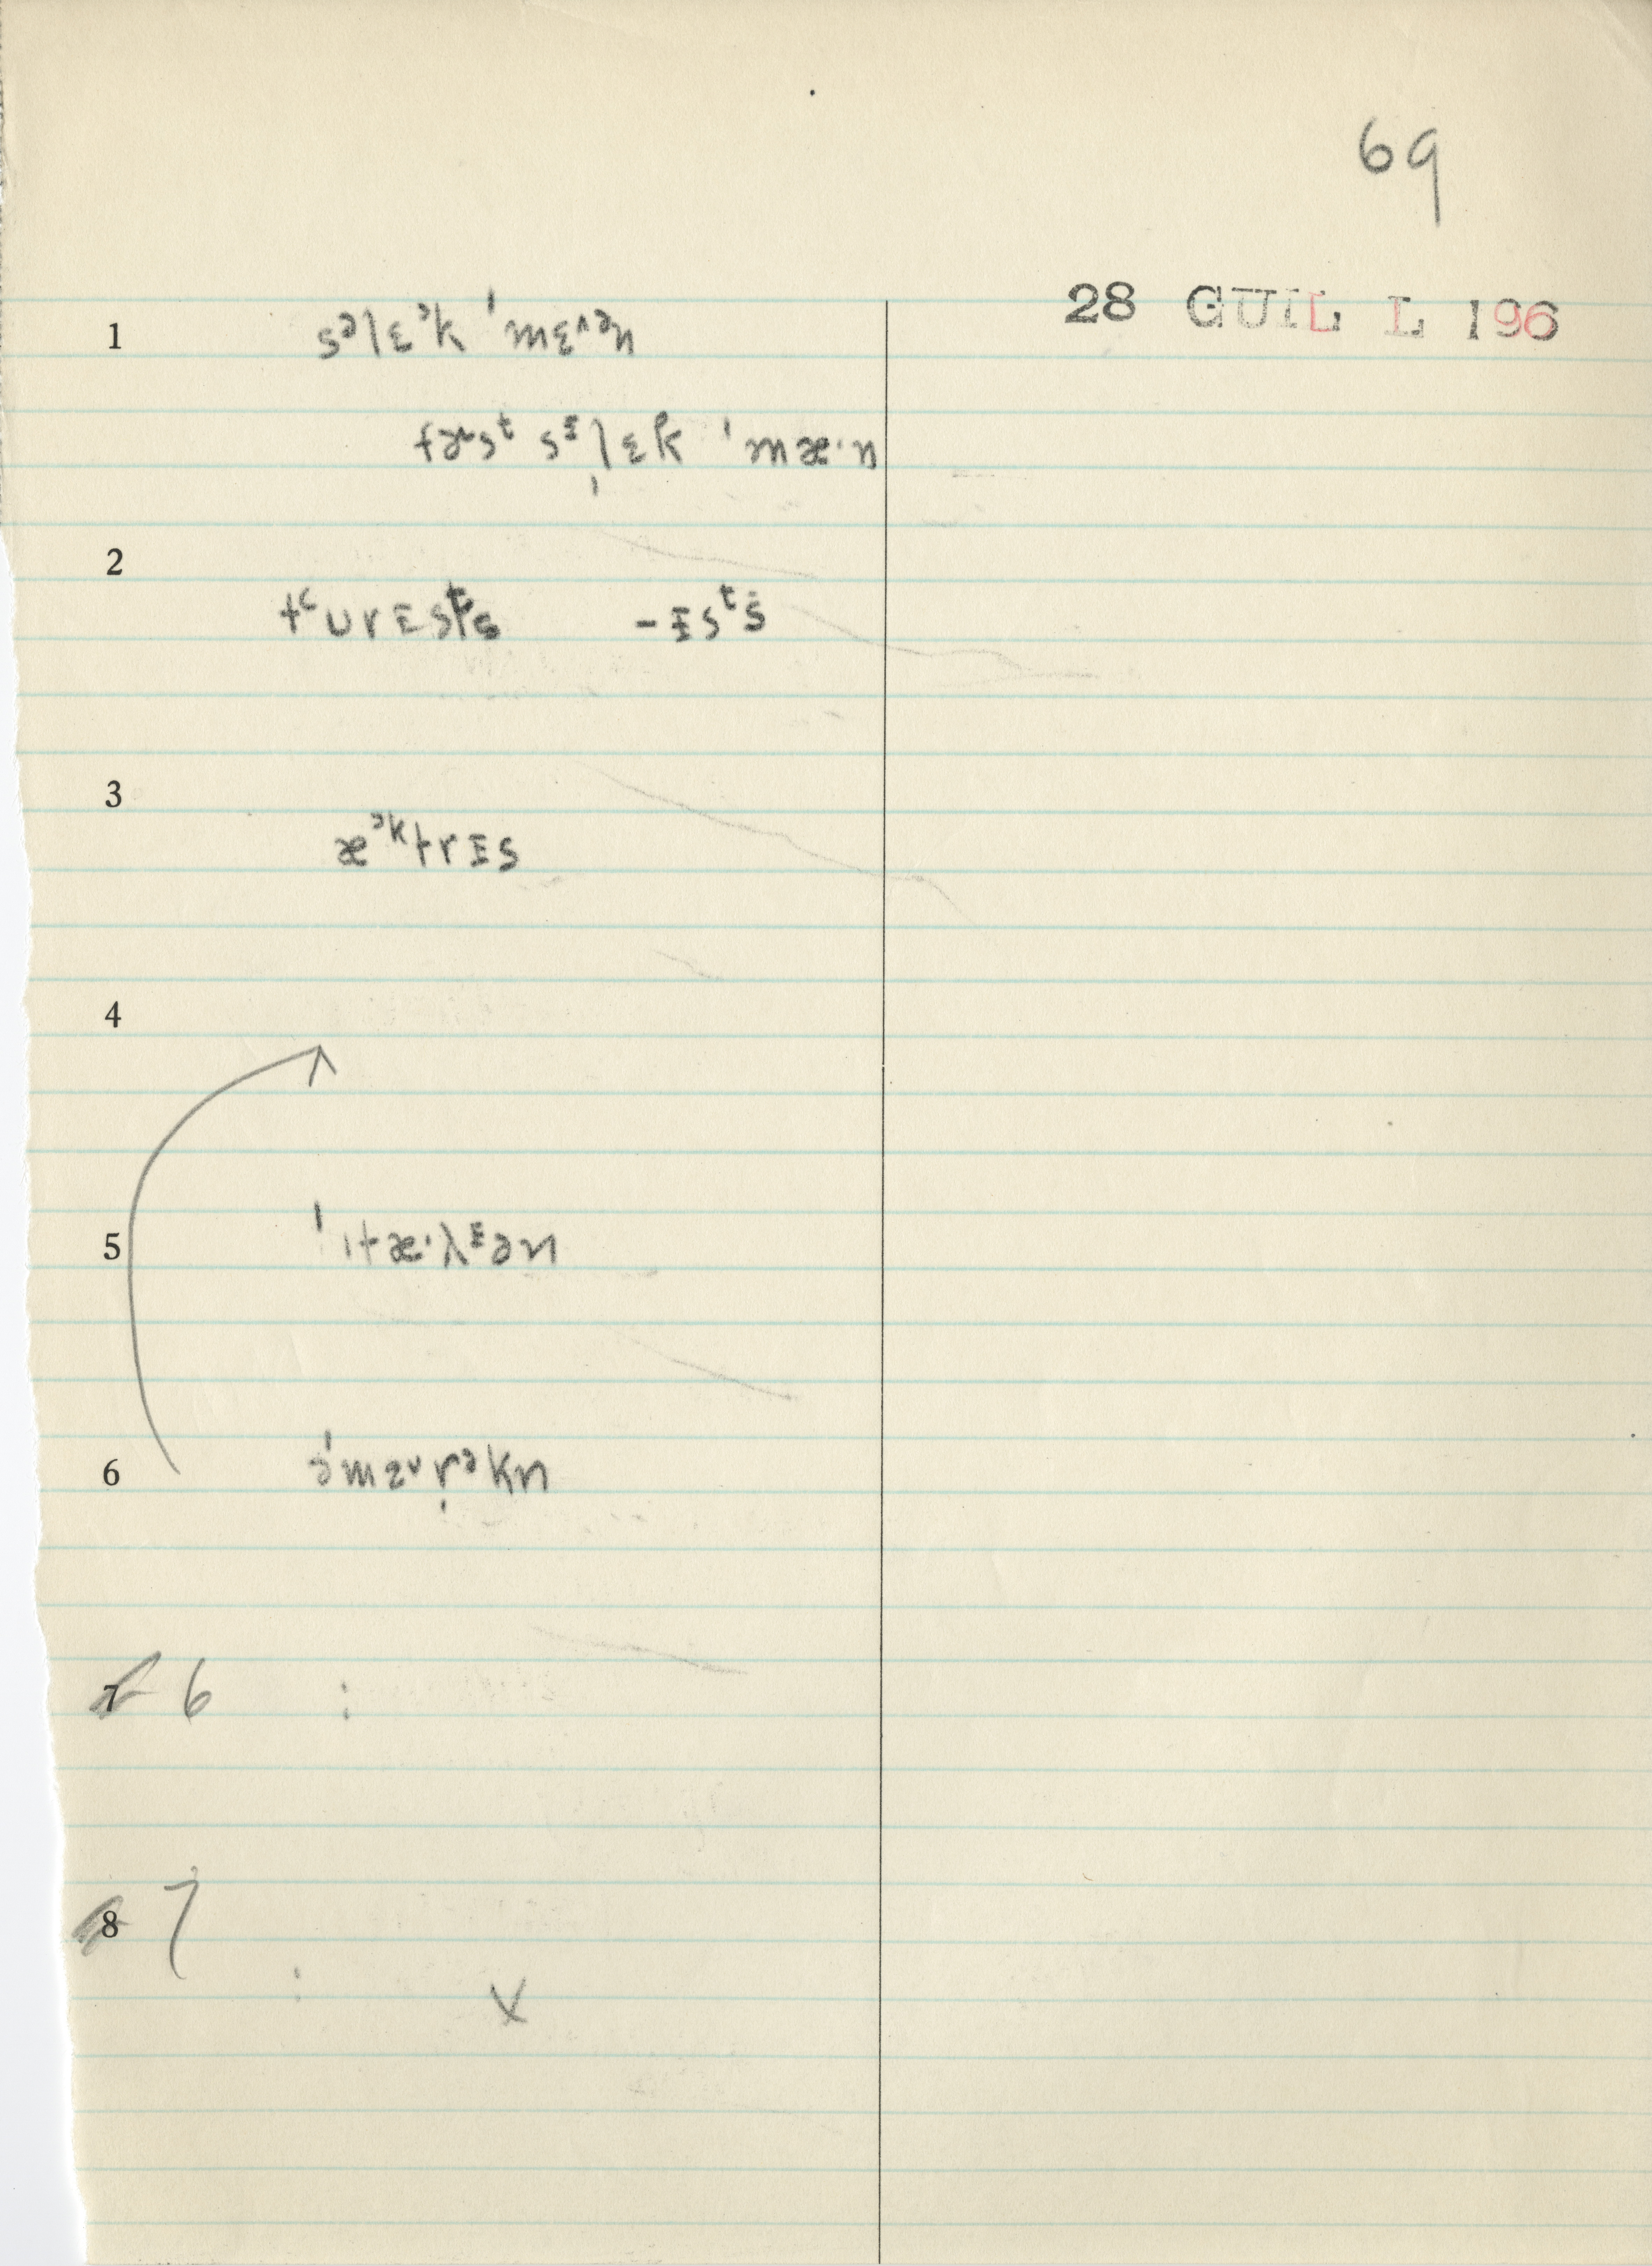 69
28 GUIL L 196
1 sᵊlɛᵊk ˈmɛ^ən
fɚsᵗ sᶦl̩ɛk ˈmæ·n
2
tᶜurɪsᵗs -ɪsᵗs
3
æᵊᵏtrɪs
4
5 ˈɪtæ·λᶦən
6 əˈmɜ^r̩ᵊkn
7 6 :
8 7
: X